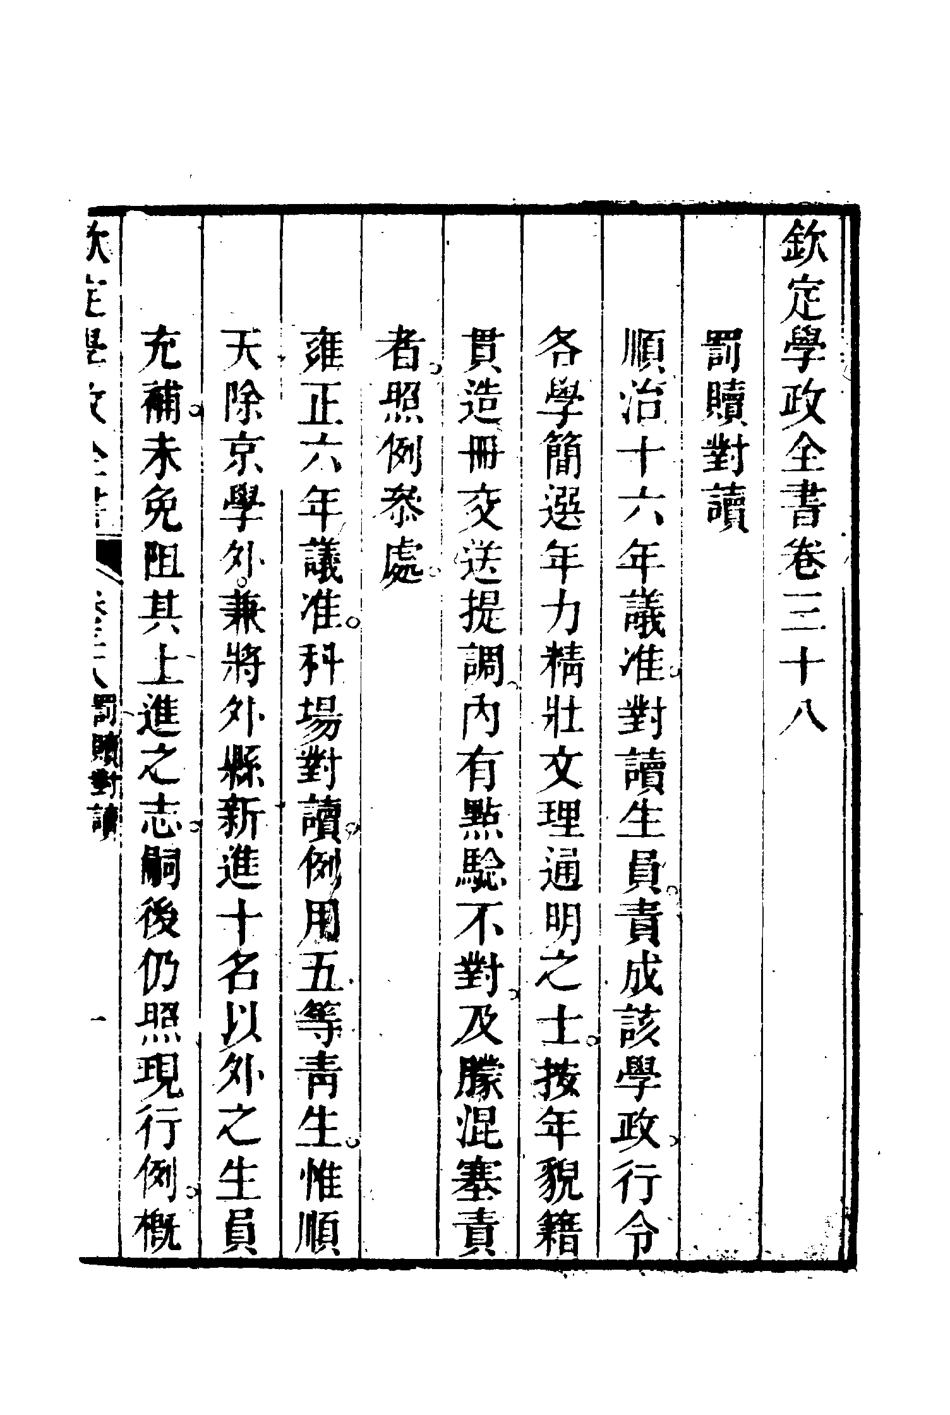 欽定學政全書卷三十八
罰贖對讀
順治十六年議准對讀生員責成該學政行令
各學簡選年力精壯文理通明之士按年貌籍
貫造冊交送提調內有點驗不對及朦混塞責
者照例叅處
雍正六年議准科場對讀例用五等青生惟順
天除京學外兼將外縣新進十名以外之生員
充補未免阻其上進之志嗣後仍照現行例概
欽定學政全書 卷三十八 罰贖對讀 一